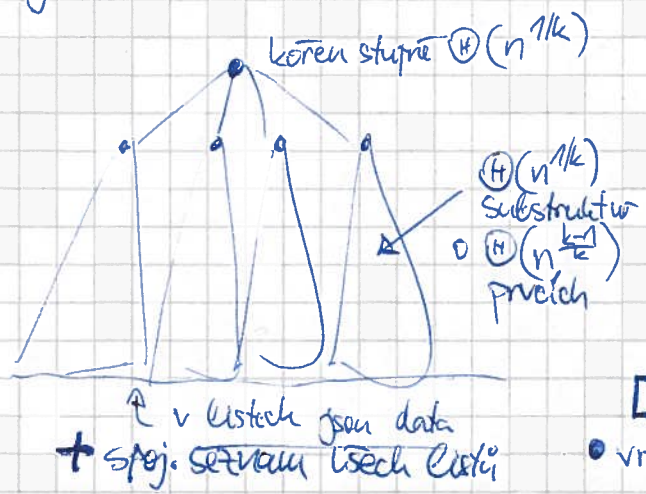 kořen stupně Θ(n^{1/k})
Θ(n^{1/k})
substruktur
o Θ(n^{\frac{k-1}{k}})
prvcích
v listech jsou data
+ spoj. seznam všech listů